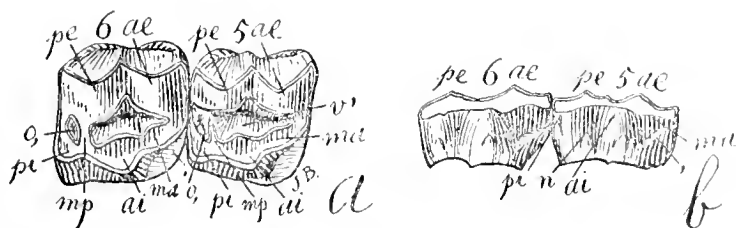 pe 6 ae pe 5 ae
v'
o, md
pi mp ai md' o, pi mp ai J.B. a
pe 6 ae pe 5 ae
md
pi n ai b